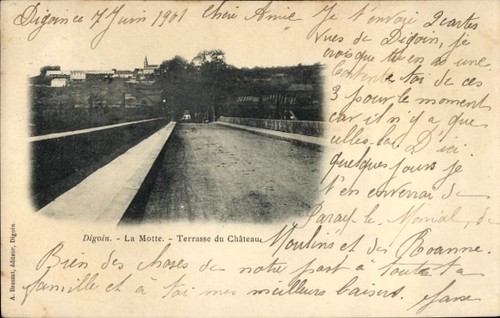 Digoin ce 7 Juin 1901 Chère Amie Je t'envoie 2 cartes
vues de Digoin, je
crois que tu en a une
contente toi de ces
3 pour le moment
car il n'y a que
celles-la D'ici
quelques jours je
t'en enverrai de
Paray-le-Monial, de
Moulins et de Roanne.
Digoin. - La Motte. - Terrasse du Château.
Bien des choses de notre part à toute ta
famille et a toi mes meilleurs baisers.
A. Édteur, Digoin